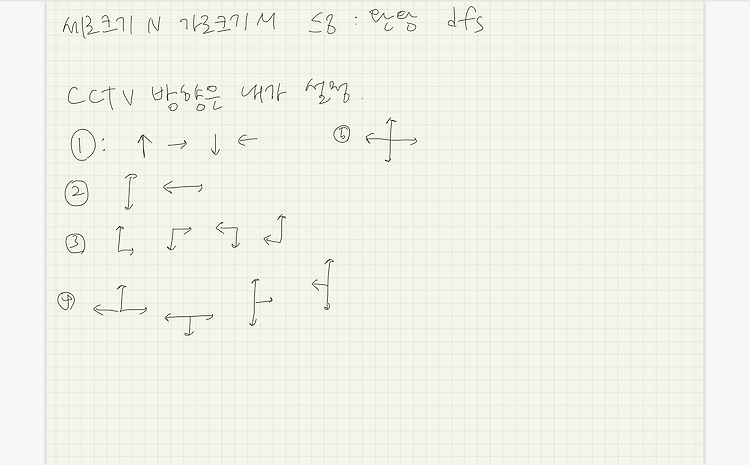 세로크기 N 가로크기 M ≤8 : 완탐 dfs
CCTV 방향은 내가 설정.
① : ↑ → ↓ ← ⑤
②
③
④